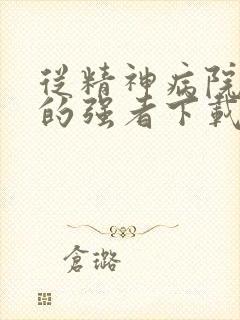 從精神病院
的强者下載
倉璐